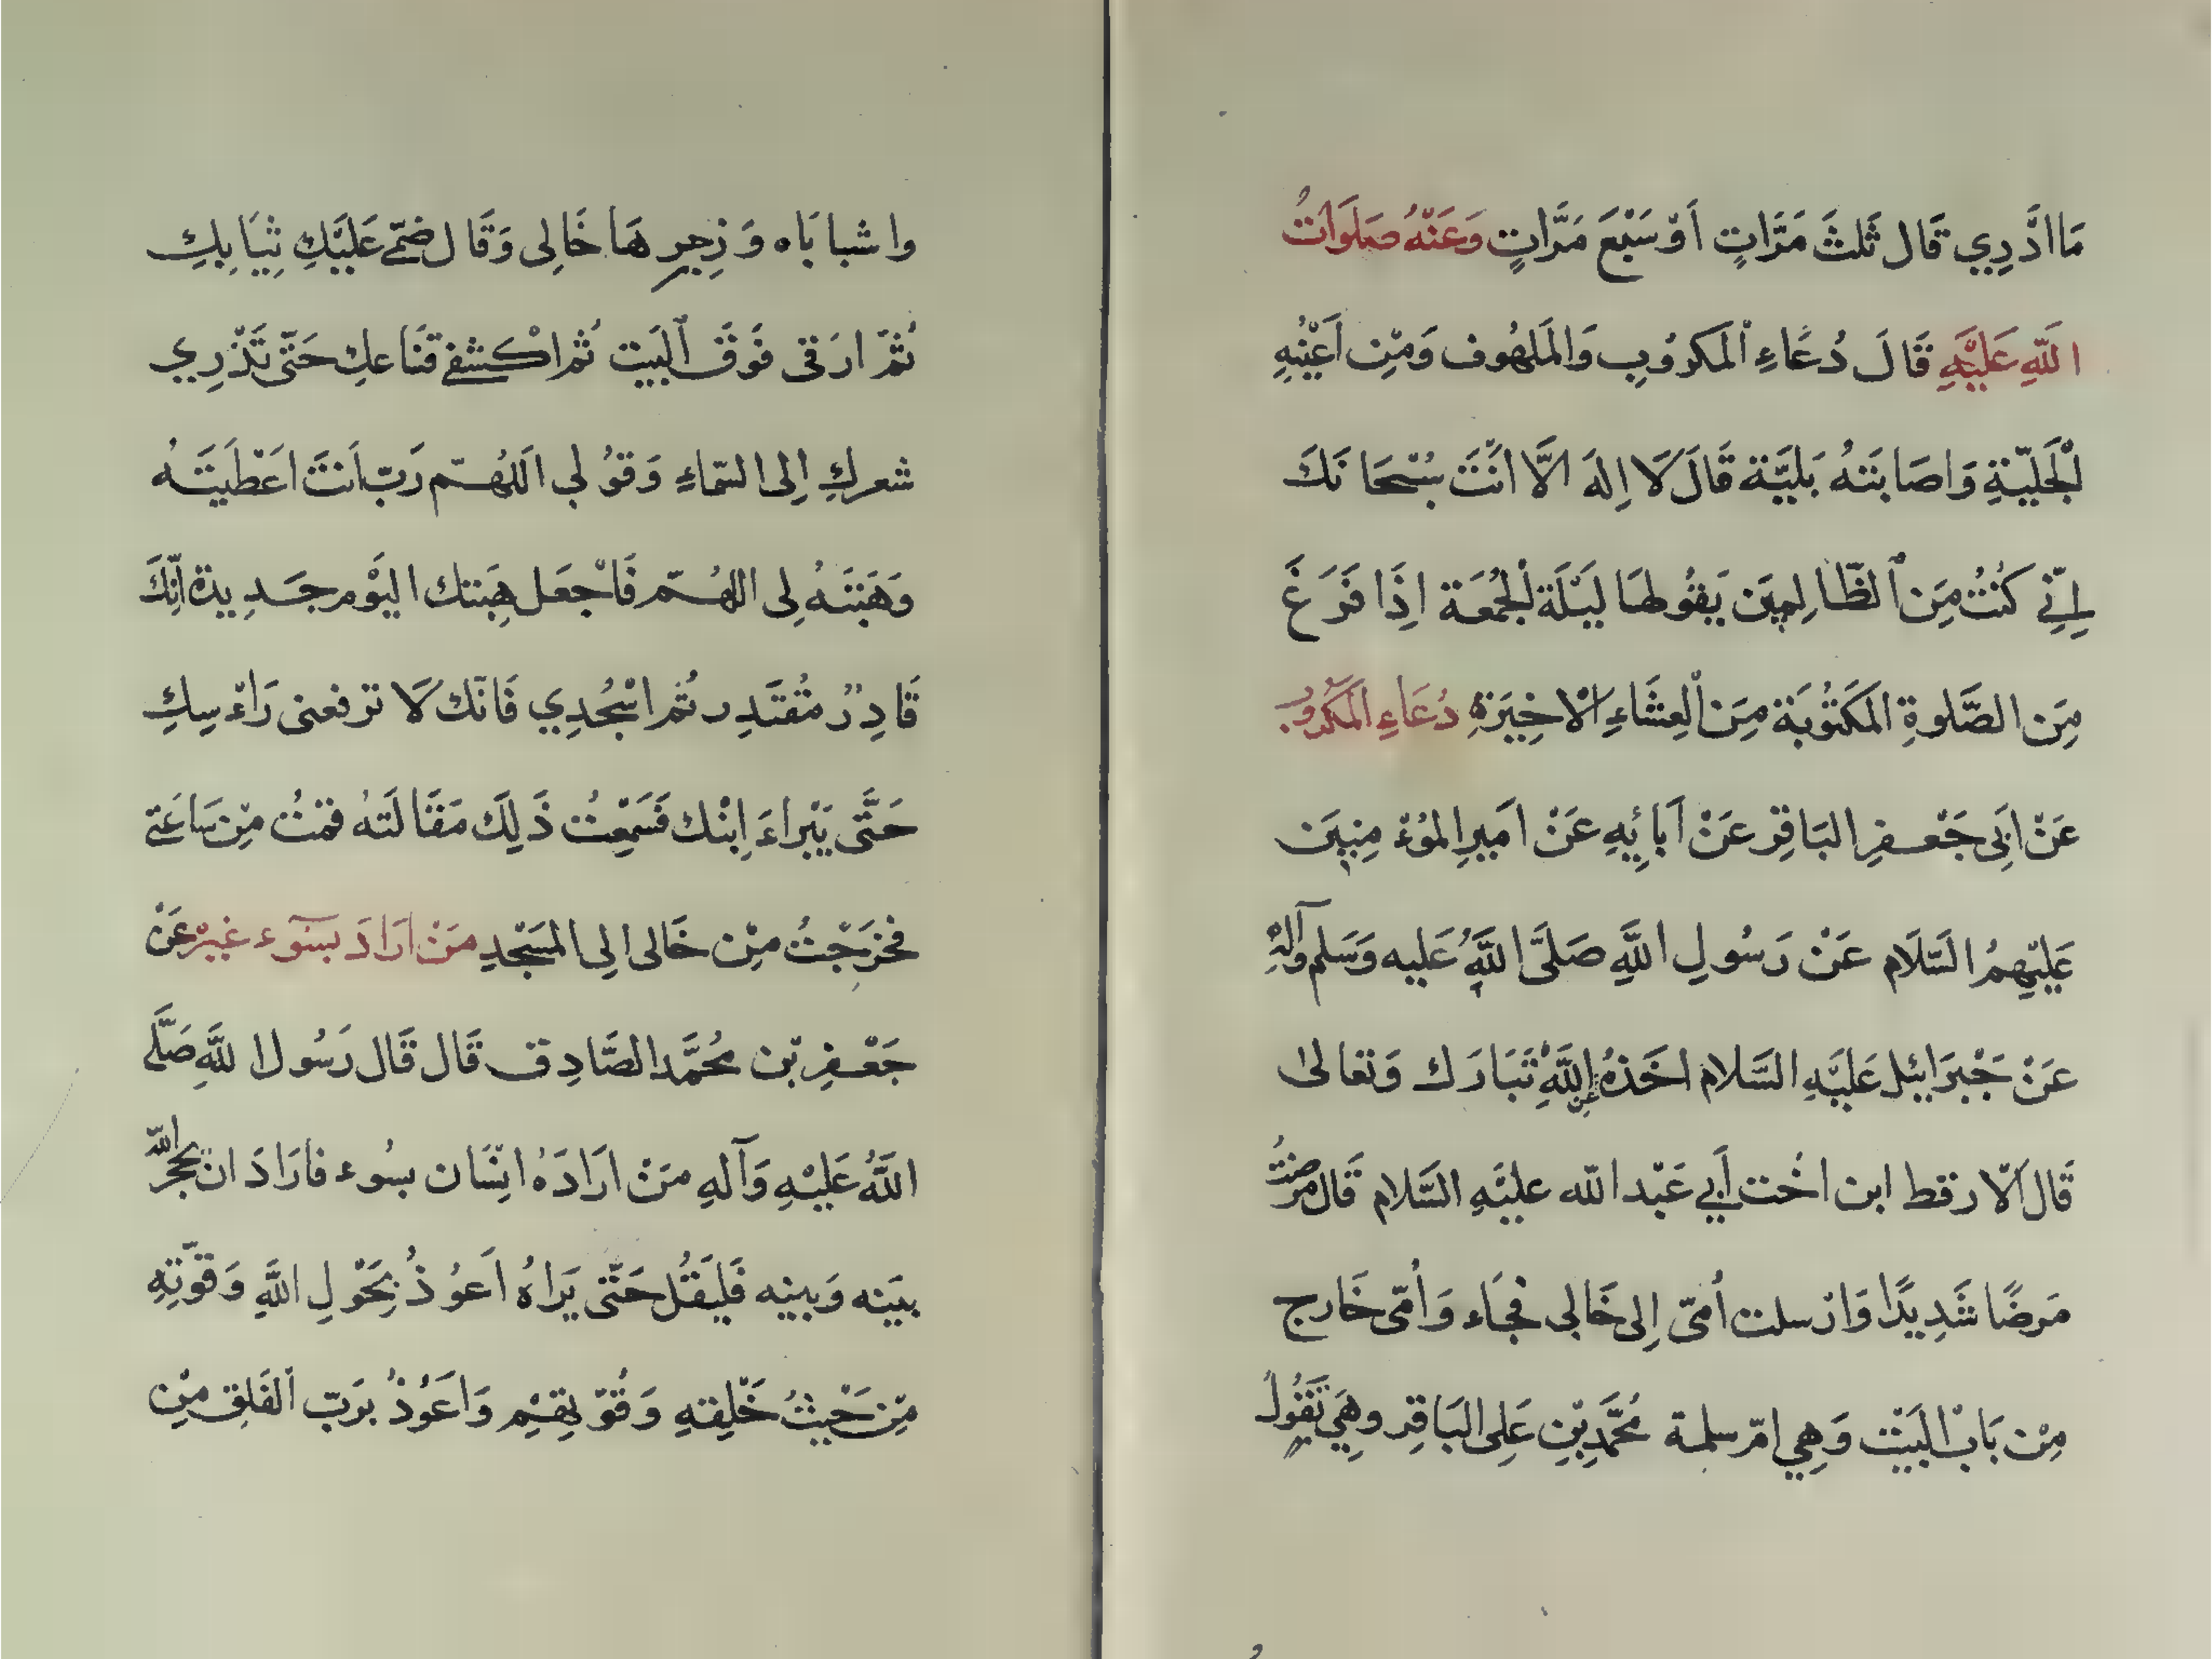 مَا اَدْرِي قَال ثَلثَ مَرَّاتٍ اَوْ سَبْعَ مَرَّاتٍ وَعَنْهُ صَلَوَاتُ
اللّهِ عَلَيْهِ قَالَ دُعَاءِ الْمَكروُبِ وَالمَلهُوف وَمِنْ اَعْيَتْهِ
اْلحَيلَةِ وَاصَابَتهُ بَليَّة قَالَ لَا اِلهَ الَّا اَنْتَ سُبْحَانَكَ
اِنّي كُنْتُ مِنَ الظّالِمِينَ يَقُولهَا لَيْلَة الجُمُعَة اِذَا فَرَغَ
مِنَ الصَّلوةِ المَكتُوبَة مِنَ الْعِشَاءِ الْاخِيَرَةِ دُعَاءِ المَكرُوبْ
عَنْ ابِى جَعْفرِ البَاقِرِ عَنْ اَبائِهِ عَنْ اَميرِ المُؤْمِنيَن
عَليْهِمُ السَّلَام عَنْ رَسُولِ اللَّهِ صَلَّى اللَّهُ عَليه وَسَلم وآلِهِ
عَنْ جَبْرَائيل عَليَهِ السَّلام اخَذهُ عن اللَّهِ تَبَارَك وَتعَالىٰ
قَال اَلَارقط ابن اخُت اَبي عَبْد اللّه عليَهِ السَّلام قَال مَرضتُ
مَرضًا شَدِيدًا وَارْسلت اُمىّ اِلى خَالِى فَجَاء وَاُمّى خَارج
مِنْ بَابْ البَيْت وَهِي امّ سلمة مُحَمَّدِبْنِ عَلِى البَاقِر وهِيَ تَقُولُ
وا شبابَاه وَزجرهَا خَالِى وَقَال ضمّى عَلَيْكِ ثِيَابِكِ
ثُمّ ارقى فَوقَ الْبَيت ثُم اكْشفى قنَاعكِ حَتّى تَذْرِي
شعركِ اِلى السّمَاءِ وَقوُلى اَللهُم رَبّ اَنتَ اعَطَيَتَه
وَهَبَتَهُ لِى اللهُمّ فَاجْعَل هِبَتك اليَوْم جَديدة اِنّكَ
قَادِرٌ مقُتَدِر ثُم اسْجُدِي فَانّك لَا ترفعنى رَاءْسِكِ
حَتَّى يَبْراءَ اِبْنك فَسَمِعْتُ ذَلِك مَقَالَتهُ فَقمتُ مِنْ سَاعَتى
فخَرَجْتُ مِنْ خَالى الِى المَسْجِدِ مَنْ ارَادَ بسَوٓء غيرْ عَنْ
جَعْفِر بْن مُحَمَّد الصَّادِق قَال قَال رَسُول اللَّهِ صَلَّى
اللَّهُ عَلَيْهِ وَآلهِ مَنْ ارَادَهُ انِسَان بسُوء فارَادَ ان يحجر اللّه
بيَنه وَبينه فَليَقُل حَتّى يَراهُ اَعوُذُ بِحَوْلِ اللَّهِ وَقوَّتِهِ
مِنْ حَيْثُ خَلْقِهِ وَقُوّتِهِم وَاعَوُذُ برَبّ الفَلِق مِنْ